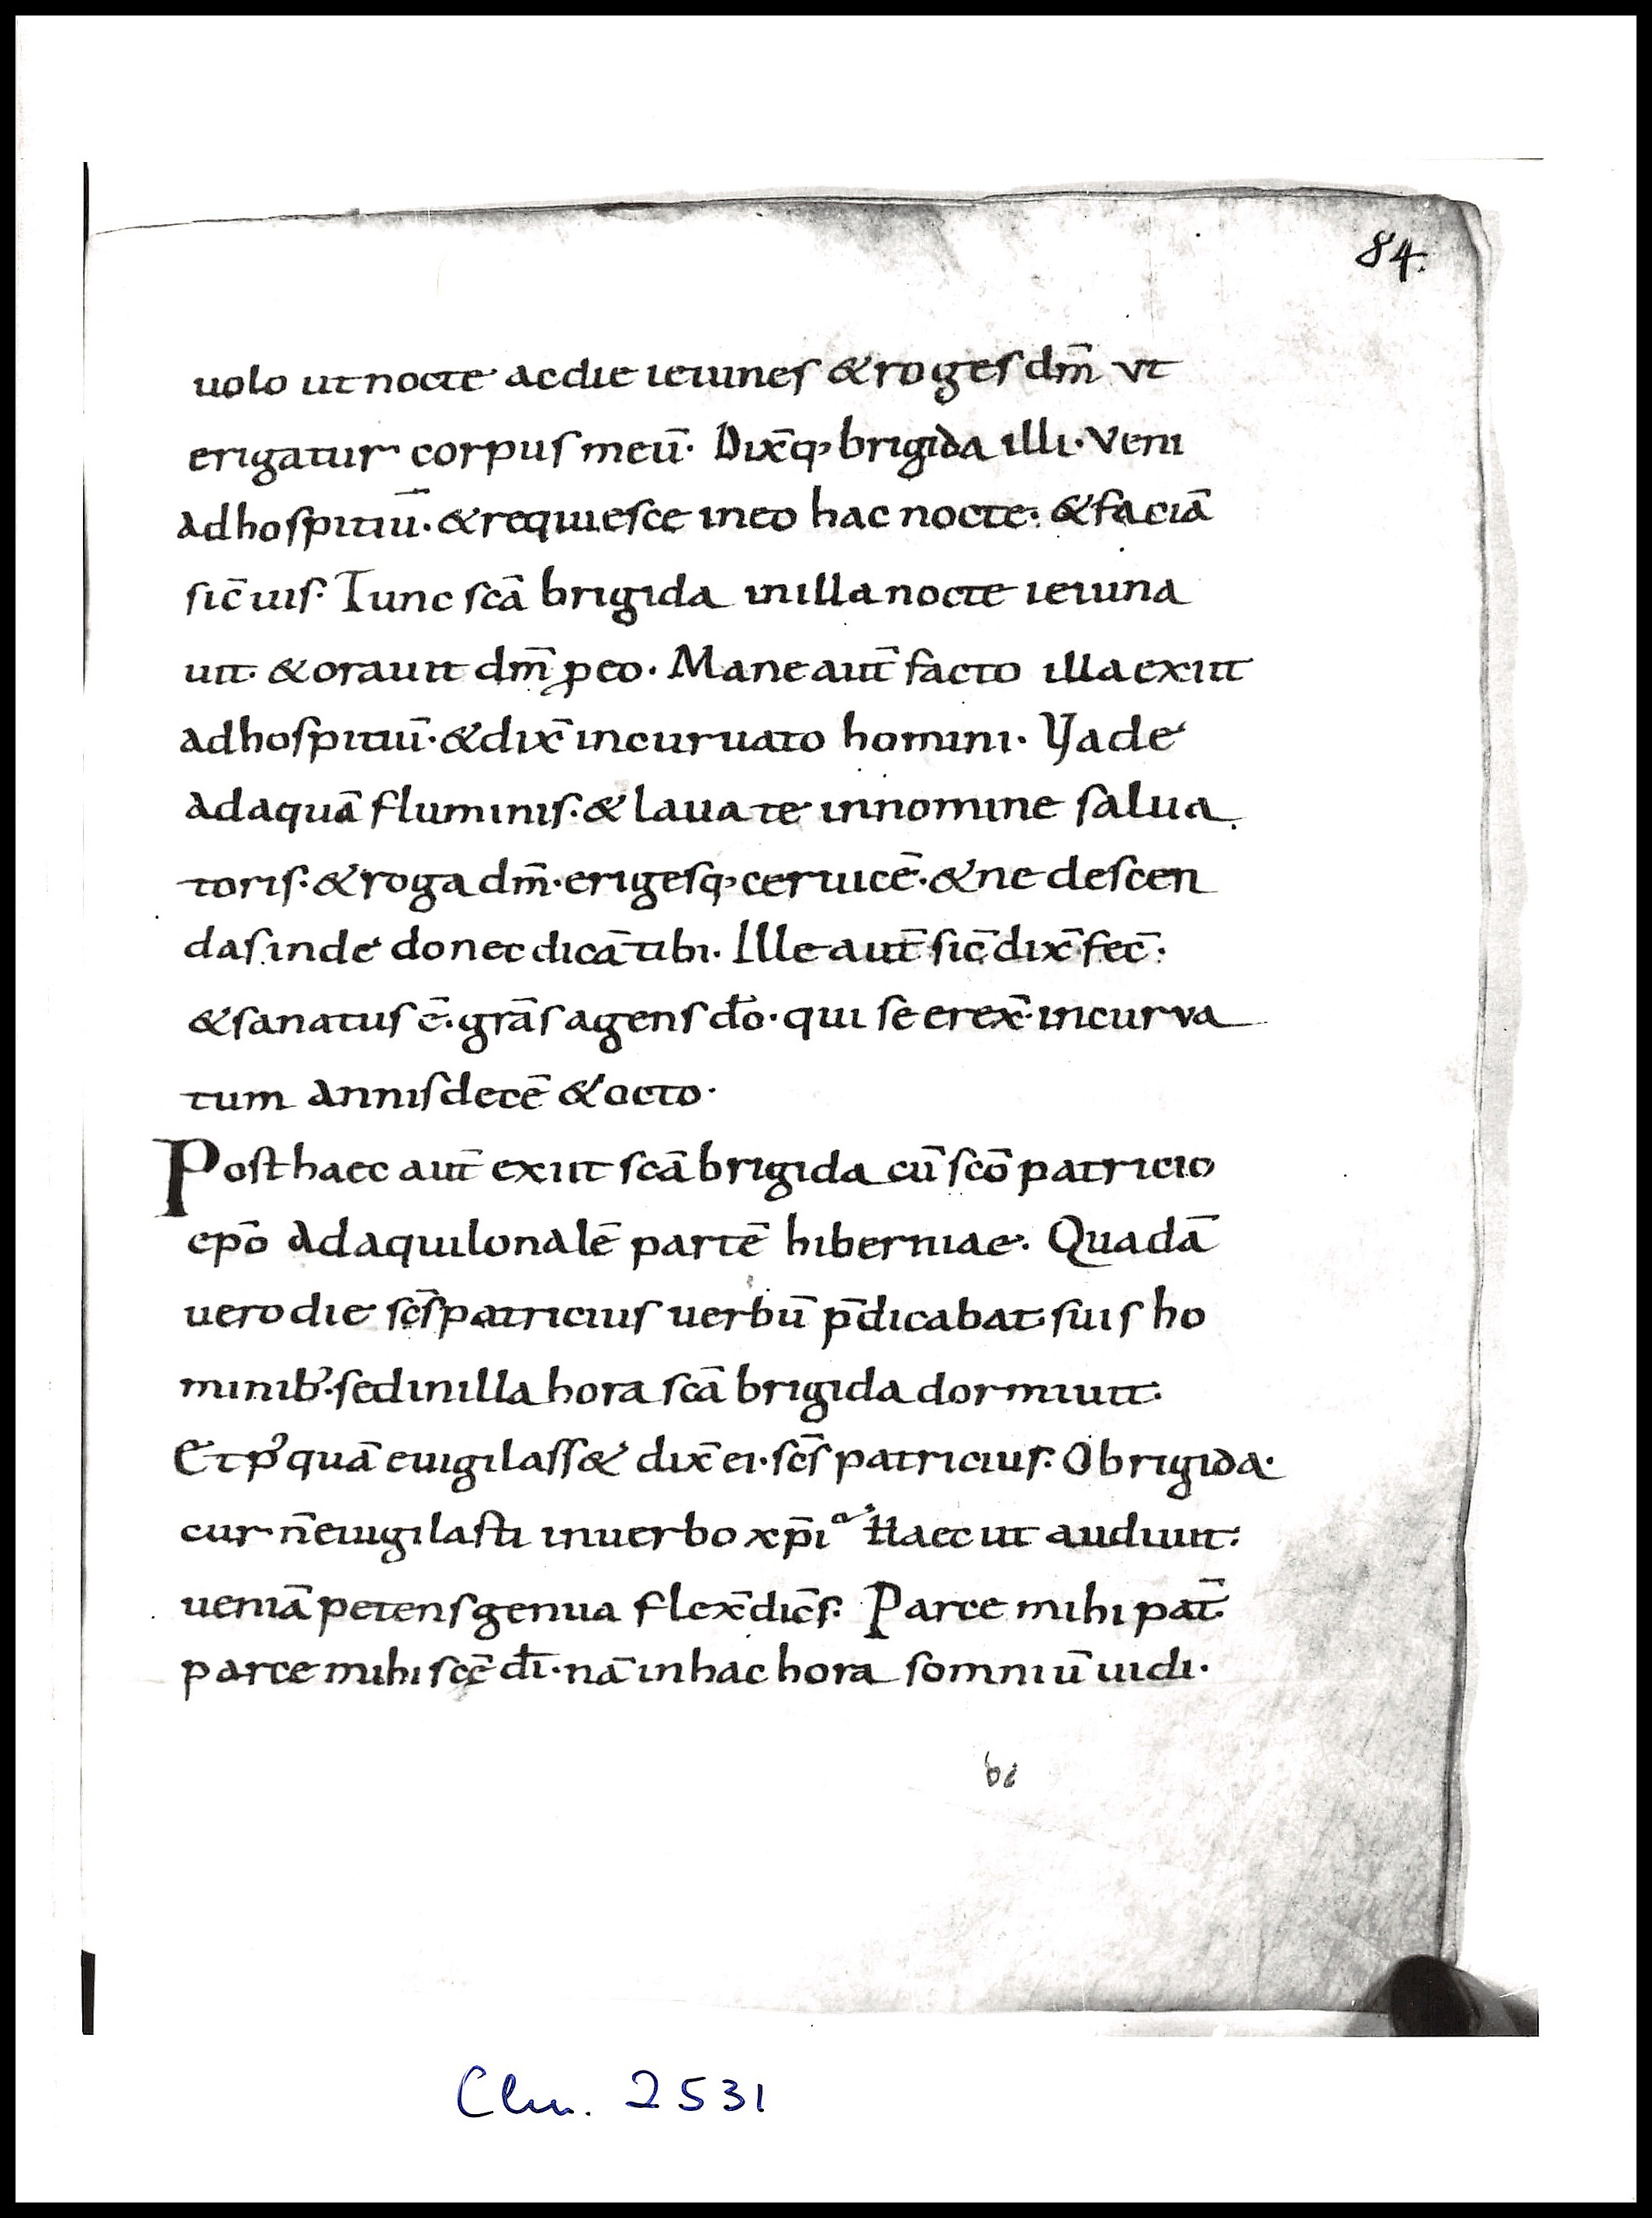 84.
uolo ut nocte ac die ieiunes & roges dm̄ vt
erigatur corpus meū. Dix̄q; brigida illi. Veni
ad hospitiū. & requiesce in eo hac nocte. & faciā
sic̄ uis. Tunc sc̄a brigida in illa nocte ieiuna
uit. & orauit dm̄ ꝓ eo. Mane aut̄ facto illa exiit
ad hospitiū. & dix̄ incuruato homini. Vade
ad aquā fluminis. & laua te in nomine salua
toris. & roga dm̄. erigesq; ceruicē. & ne descen
das inde donec dicā tibi. Ille aut̄ sic̄ dix̄ fec̄.
& sanatus ē. grās agens dō. qui se erex̄ incurva
tum annis decē & octo.
Post haec aut̄ exiit sc̄a brigida cū sc̄o patricio
ep̄o ad aquilonalē partē hiberniae. Quadā
uero die sc̄s patricius uerbū p̄dicabat suis ho
minib;. sed in illa hora sc̄a brigida dormiuit.
Et pꝰquā euigilass& dix̄ ei. sc̄s patricius. O brigida.
cur n̄ euigilasti in uerbo xp̄i? Haec ut audiuit.
ueniā petens genua flex̄ dic̄s. Parce mihi pat̄
parce mihi sc̄e dī. nā in hac hora somniū uidi.
Clm. 2531